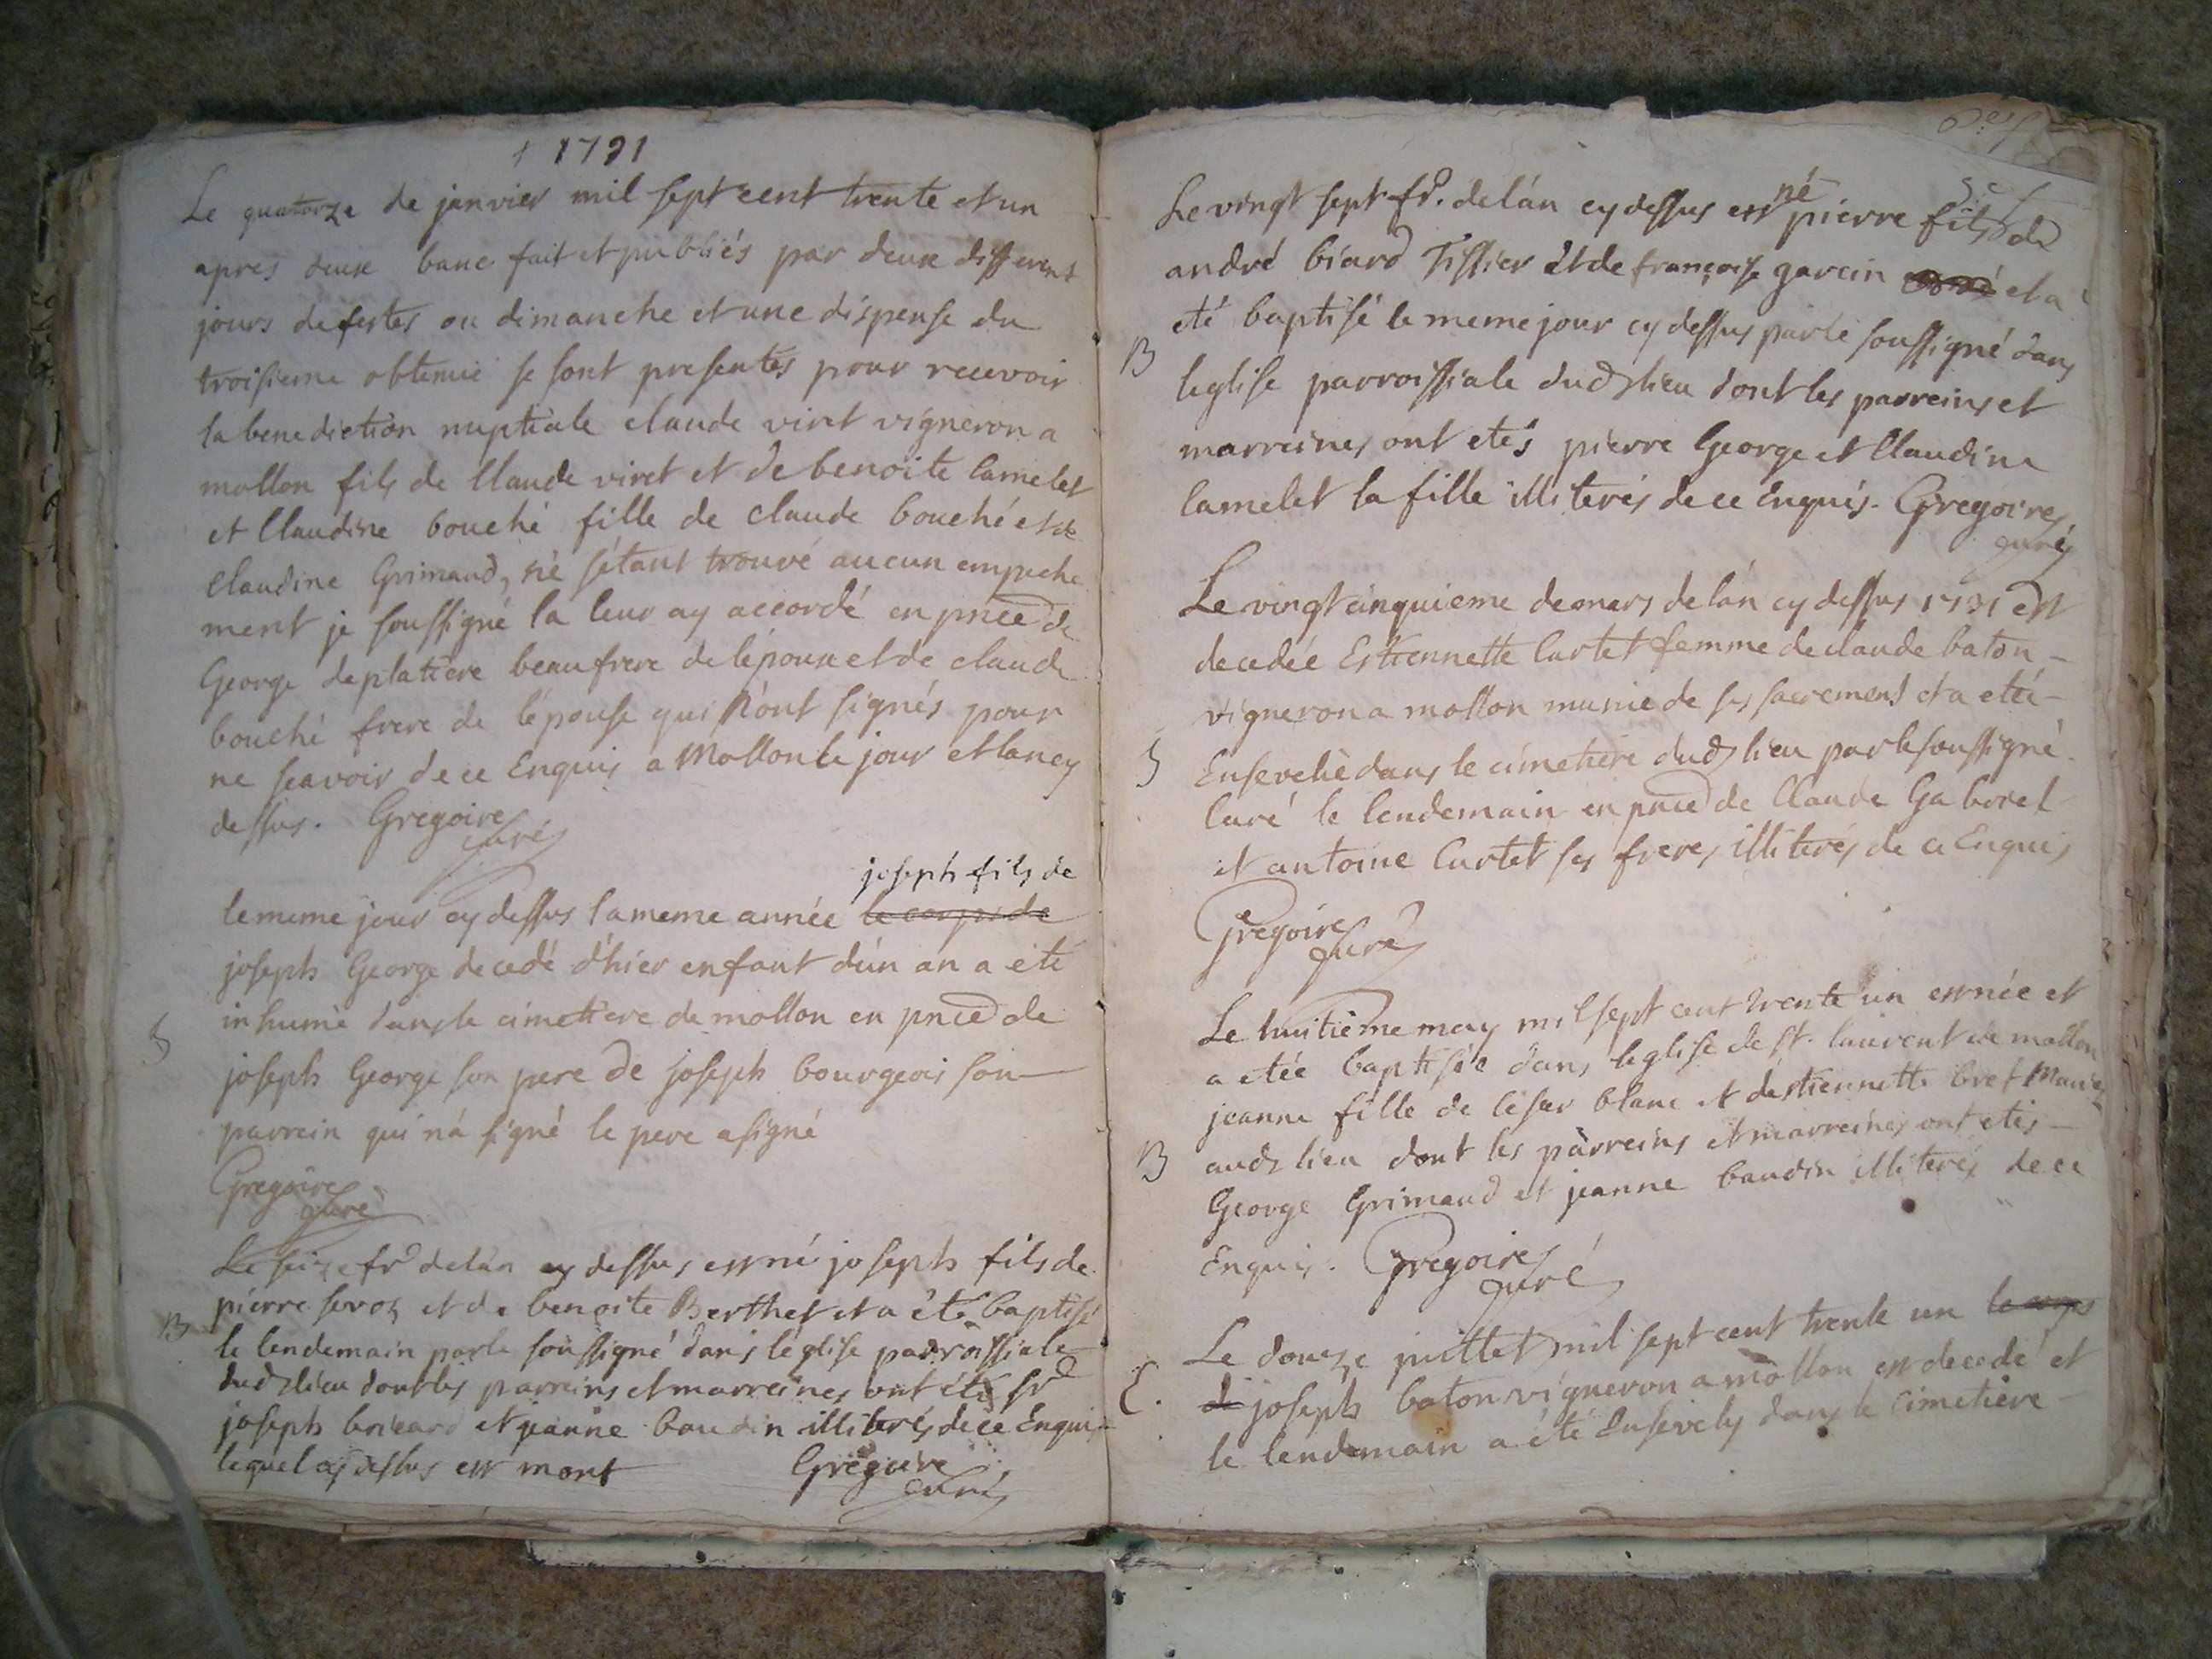 1731
Le quatorze de janvier mil sept cent trente et un
apres deux banc fait et publiés par deux different
jours de festes ou dimanche et une dispense du
troisieme obtenue se sont presentés pour recevoir
la benediction nuptiale claude viret vigneron a
mollon fils de Claude viret et de benoite Camelet
et Claudine bouché fille de claude bouché et de
Claudine Grimaud, ne s'étant trouvé aucun empeche
ment je soussigné la leur ay accordé en pnce de
George deplatiere beaufrere de l'époux et de claude
bouché frere de l'épouse qui n'ont signés pour
ne scavoir de ce Enquis a Mollon le jour et lan cy
dessus. Gregoire
Curé
joseph fils de
le meme jour cy dessus la meme année le corps de
joseph George decedé d'hier enfant d'un an a été
inhumé dans le cimetiere de mollon en pnce de
S
joseph George son pere de joseph bourgeois son
parrein qui n'a signé le pere a signé
Gregoire
Curé
Le seize fr delan cy dessus est né joseph fils de
pierre servoz et de benoite Berthet et a été baptisé
B
le lendemain par le soussigné dans l'église parroissiale
dud lieu dont les parreins et marreines ont étés sr
joseph bricard et jeanne baudin illiterés de ce Enquis
lequel cy dessus est mort Gregoire
Curé
Le vingt sept fr. de lán cy dessus est né pierre fils de
andré biard Tissier et de françoise garcin et a
eté baptisé le meme jour cy dessus par le soussigné dans
B
leglise parroissiale dud lieu dont les parreins et
marreines ont etés pierre George et Claudine
Camelet la fille illiterés de ce Enquis. Gregoire
Curé
Le vingt cinquieme de mars de lán cy dessus 1731 est
decedée Estiennette Curtet femme de claude baton
vigneron a mollon munie de ses sacrement et a eté
S
Ensevelie dans le cimetiere dud lieu par le soussigné
Curé le lendemain en pnce de Claude Gaboret
et antoine Curtet ses freres illiterés de ce Enquis
Gregoire
Curé
Le huitième may mil sept cent trente un est née et
a etée baptisée dans leglise de st. laurent de mollon
jeanne fille de Césár blanc et destiennette bref Mariés
B
aud lieu dont les parreins et marreines ont etés
George Grimaud et jeanne baudin illiterés de ce
Enquis. Gregoire
Curé
Le douze juillet mil sept cent trente un le corps
E. de joseph baton vigneron a mollon est decedé et
le lendemain a été Ensevely dans le cimetière